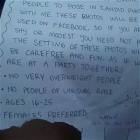 PEOPLE TO POSE IN CANDID PHOTOS
WITH ME. THESE PHOTOS WILL BE
USED ON FACEBOOK, SO IF YOU ARE
SHY OR MODEST YOU NEED NOT
THE SETTING OF THESE PHOTOS WILL
BE CAREFREE AND FUN, AS IF WE
ARE AT A PARTY TOGETHER!
• NO VERY OVERWEIGHT PEOPLE
• NO PEOPLE OF UNUSUAL RACE
• AGES 16-25
FEMALES PREFERRED